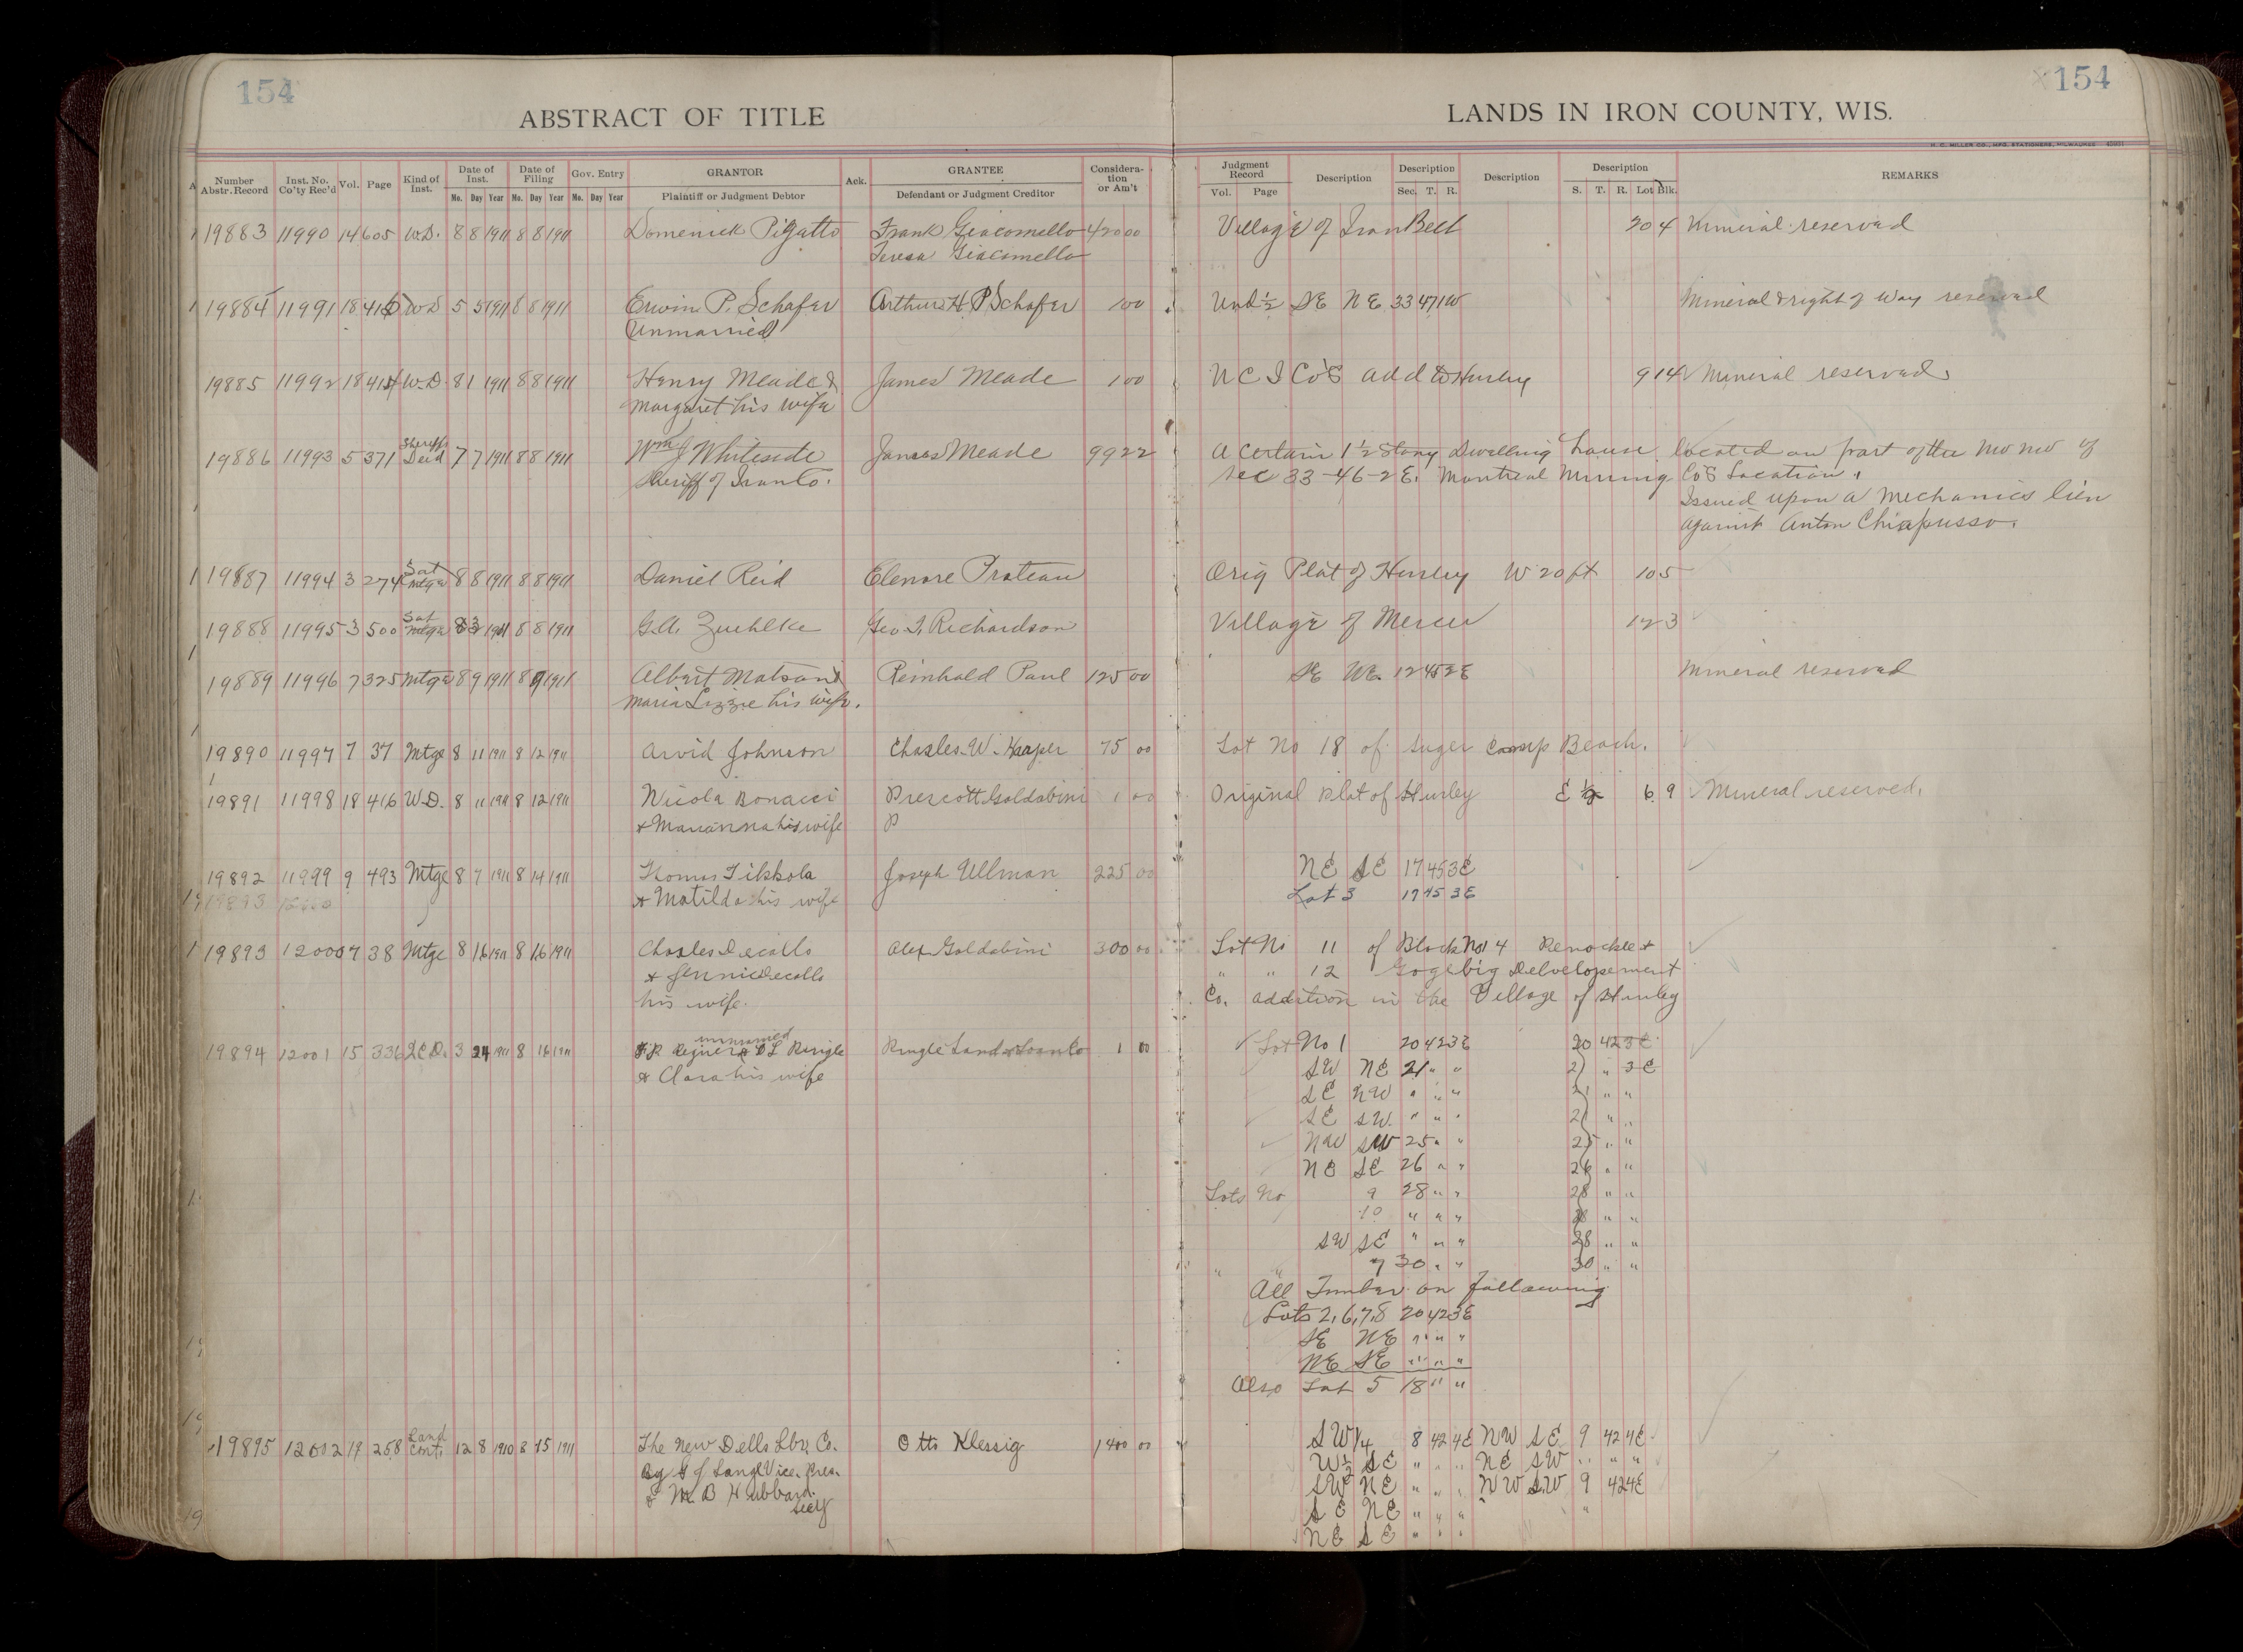 154
154
ABSTRACT OF TITLE
LANDS IN IRON COUNTY, WIS.
H. C. MILLER CO., MFG. STATIONERS, MILWAUKEE
Number Abstr. Record
Inst. No. Co'ty Rec'd
Vol.
Page
Kind of Inst.
Date of Inst.
Date of Filing
Gov. Entry
GRANTOR
Ack.
GRANTEE
Consideration or Am't
Judgment Record
Description
Description
Description
Description
REMARKS
Mo. Day Year Mo. Day Year Mo. Day Year
Plaintiff or Judgment Debtor
Defendant or Judgment Creditor
Vol. Page
Sec. T. R.
S. T. R. Lot Blk.
19883 11990 14 605 W.D. 8 8 1911 8 8 1911 Domenick Pigatto Frank Giacomello 420 00 Village of Iron Belt 20 4 Mineral reserved
Teresa Giacomello
19884 11991 18 415 WD 5 5 1911 8 8 1911 Erwin P. Schafer Arthur H P Schafer 1 00 Und 1/2 SE NE 33 47 1W Mineral & right of way reserved
(Unmarried)
19885 11992 18 414 W-D. 8 1 1911 8 8 1911 Henry Meade & James Meade 1 00 N C I Co's add to Hurley 9 14 Mineral reserved
Margaret his wife
19886 11993 5 371 Sheriffs Deed 7 7 1911 8 8 1911 Wm J Whiteside James Meade 99 22 A certain 1 1/2 Story Dwelling house located on part of the NW NW of
Sheriff of Iron Co. Sec 33-46-2E. Montreal Mining Co's Location.
Issued upon a Mechanics lien
against Anton Chiapusso.
19887 11994 3 274 Sat Mtge 8 8 1911 8 8 1911 Daniel Reid Elenore Proteau Orig Plat of Hurley W 20 ft 10 5
19888 11995 3 500 Sat Mtge 8 3 1911 8 8 1911 G.A. Zuehlke Geo. T. Richardson Village of Mercer 12 3
19889 11996 7 325 Mtge 8 9 1911 8 9 1911 Albert Matson & Reinhold Paul 125 00 SE NE. 12 45 2E Mineral reserved
Maria Lizzie his wife.
19890 11997 7 37 Mtge 8 11 1911 8 12 1911 Arvid Johnson Charles W. Harper 75 00 Lot No 18 of Suger Camp Beach.
19891 11998 18 416 W-D. 8 11 1911 8 12 1911 Nicola Bonacci Prescott Goldabini 1 00 Original Plat of Hurley E 1/2 6 9 Mineral reserved.
& Marianna his wife P
19892 11999 9 493 Mtge 8 7 1911 8 14 1911 Thomas Tikkola Joseph Ullman 225 00 NE SE 17 45 3E
19893 & Matilda his wife Lot 3 17 45 3E
19893 12000 7 38 Mtge 8 16 1911 8 16 1911 Charles Decallo Alex Goldabini 300 00 Lot No 11 of Block No 4
& Jennie Decallo " " 12 Gogebig Delvelopement
his wife. Co. addition in the Village of Hurley
19894 12001 15 336 Q.C.D. 3 24 1911 8 16 1911 unmarried & D L Ringle Ringle Land & Loan Co 1 00 Lot No 1 20 42 3E 20 42 3E
& Clara his wife SW NE 21 " " 21 " 3E
SE NW " " " 21 " "
SE SW. " " " 21 " "
NW SW 25 " " 25 " "
NE SE 26 " " 26 " "
Lots No 9 28 " " 28 " "
10 " " " 28 " "
SW SE " " " 28 " "
" " 7 30 " " 30 " "
All Timber on following
Lots 2,6,7,8 20 42 3E
SE NE " " "
NE SE " " "
Also Lot 5 18 " "
19895 12002 19 258 Land Cont. 12 8 1910 8 15 1911 The New Dells Lbr. Co. Otto Klessig 1400 00 SW 1/4 8 42 4E NW SE 9 42 4E
By J Lange Vice. Pres. W 1/2 SE " " " NE SW " " "
& M B Hubbard. SW NE " " " NW SW 9 42 4E
Secy SE NE " " " "
NE SE " " "